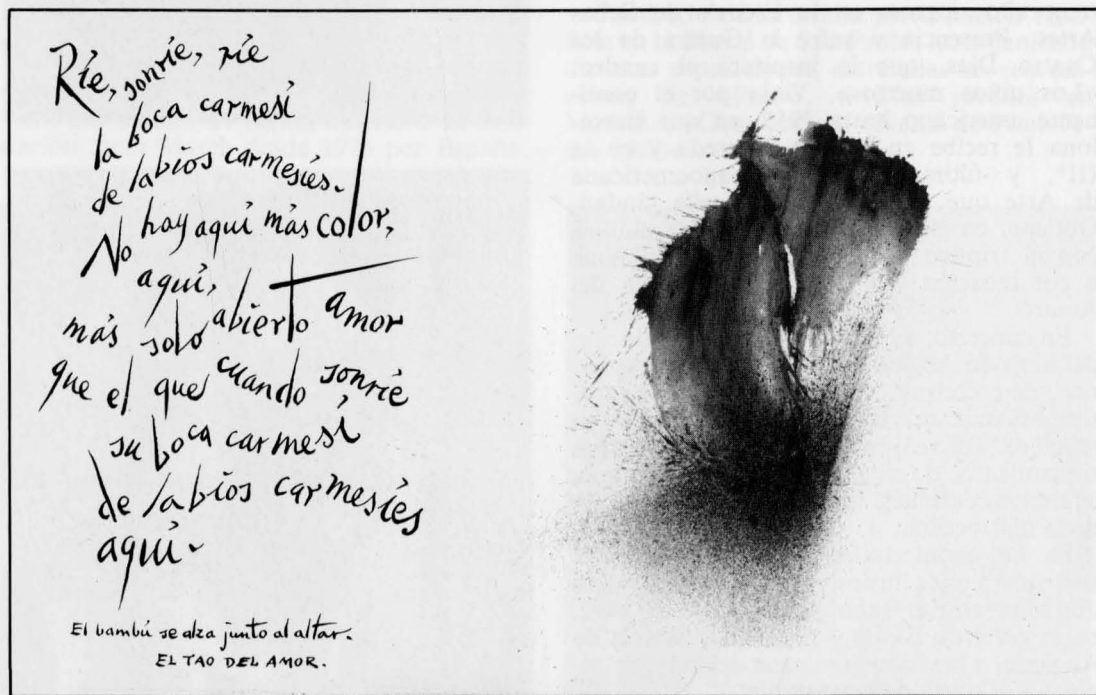 Ríe, sonríe, ríe
la boca carmesí
de labios carmesíes.
No hay aquí más color,
aquí, abierto amor
más solo
que el que cuando sonríe
su boca carmesí
de labios carmesíes
aquí.
El bambú se alza junto al altar.
EL TAO DEL AMOR.